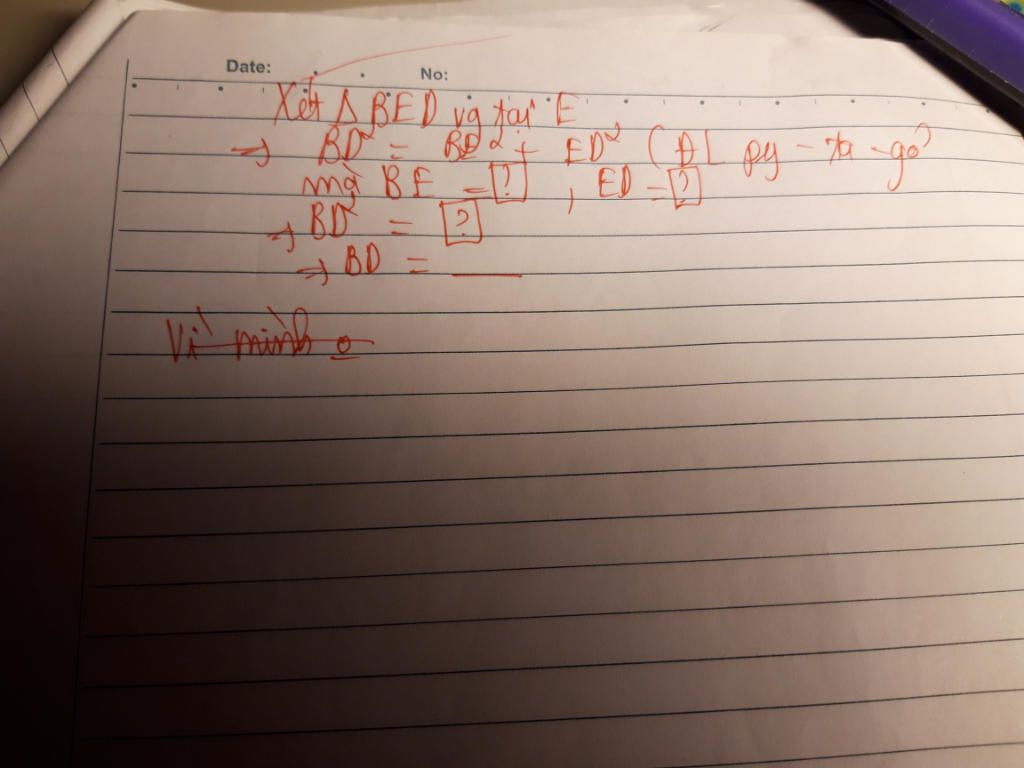 Date: No:
Xét Δ BED vg tại E
=> BD² = BE² + ED² (ĐL py-ta-go)
mà BE = [?], ED = [?]
=> BD² = [?]
=> BD = ____
Vì mình o